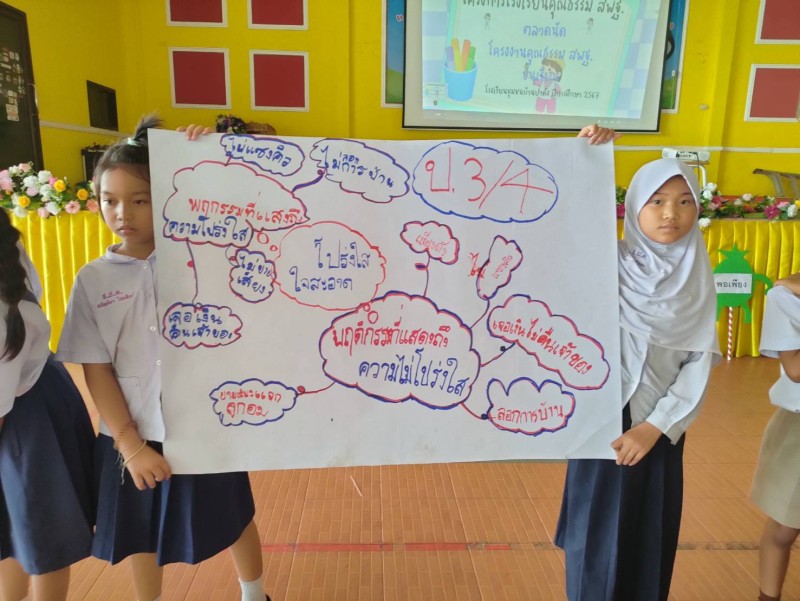 โครงการโรงเรียนคุณธรรม สพฐ.
ตลาดนัด
โครงงานคุณธรรม สพฐ.
ปีการศึกษา 2567
ไม่แซงคิว
ไม่ลอการบ้าน
ป. 3/4
พฤกรรมที่แสดงถึง
ความโปร่งใส
โปร่งใส
ใจสะอาด
ไม่ขาย
เสียง
เจอเงิน
คืนเจ้าของ
พฤติกรรมที่แสดงถึง
ความไม่โปร่งใส
เจอเงินไม่คืนเจ้าของ
ลอกการบ้าน
ลูกอม
พอเพียง